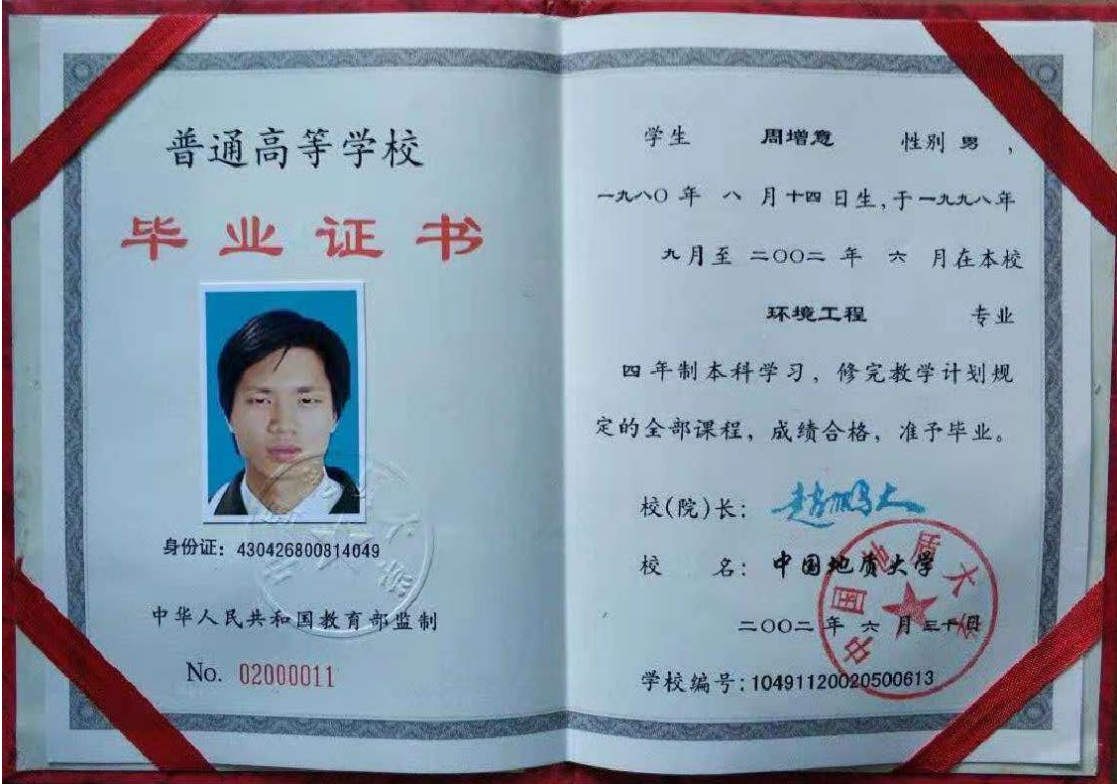 普通高等学校
毕业证书
身份证：430426800814049
中华人民共和国教育部监制
No. 02000011
学生 周增意 性别 男，
一九八〇年 八 月 十四 日生，于一九九八年
九月至 二〇〇二 年 六 月在本校
环境工程 专业
四年制本科学习，修完教学计划规
定的全部课程，成绩合格，准予毕业。
校(院)长：赵鹏大
校 名：中国地质大学
二〇〇二 年 六 月三十日
学校编号：10491120020500613
中国地质大学